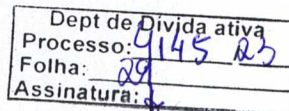 Dept de Dívida ativa
Processo: 9145 23
Folha: 29
Assinatura: